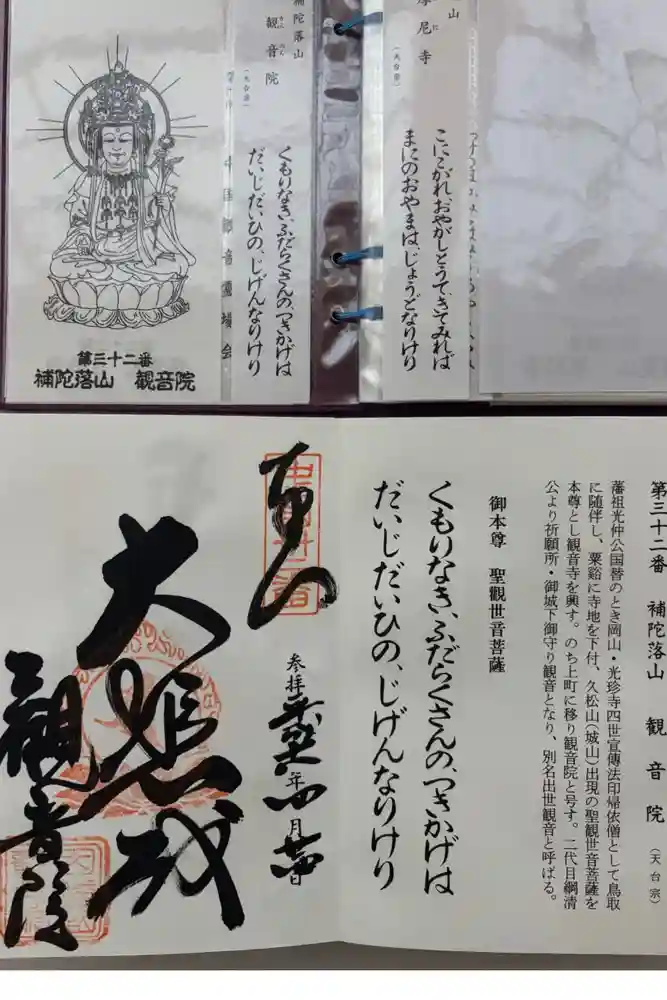 補陀落山
観音院
（天台宗）
くもりなき、ふだらくさんの、つきかげは
だいじだいひの、じげんなりけり
中国観音霊場会
第三十二番
補陀落山　観音院
山
摩尼寺
（天台宗）
こにこがれ、おやがしとうて、きてみれば
まにのおやまは、じょうどなりけり
第三十二番　補陀落山　観音院（天台宗）
藩祖光仲公国替のとき岡山・光珍寺四世宣傳法印帰依僧として鳥取
に随伴し、粟谿に寺地を下付、久松山（城山）出現の聖観世音菩薩を
本尊とし観音寺を興す。のち上町に移り観音院と号す。二代目綱清
公より祈願所・御城下御守り観音となり、別名出世観音と呼ばる。
御本尊　聖觀世音菩薩
くもりなき、ふだらくさんの、つきかげは
だいじだいひの、じげんなりけり
参拝
年
月
日
大悲殿
観音院